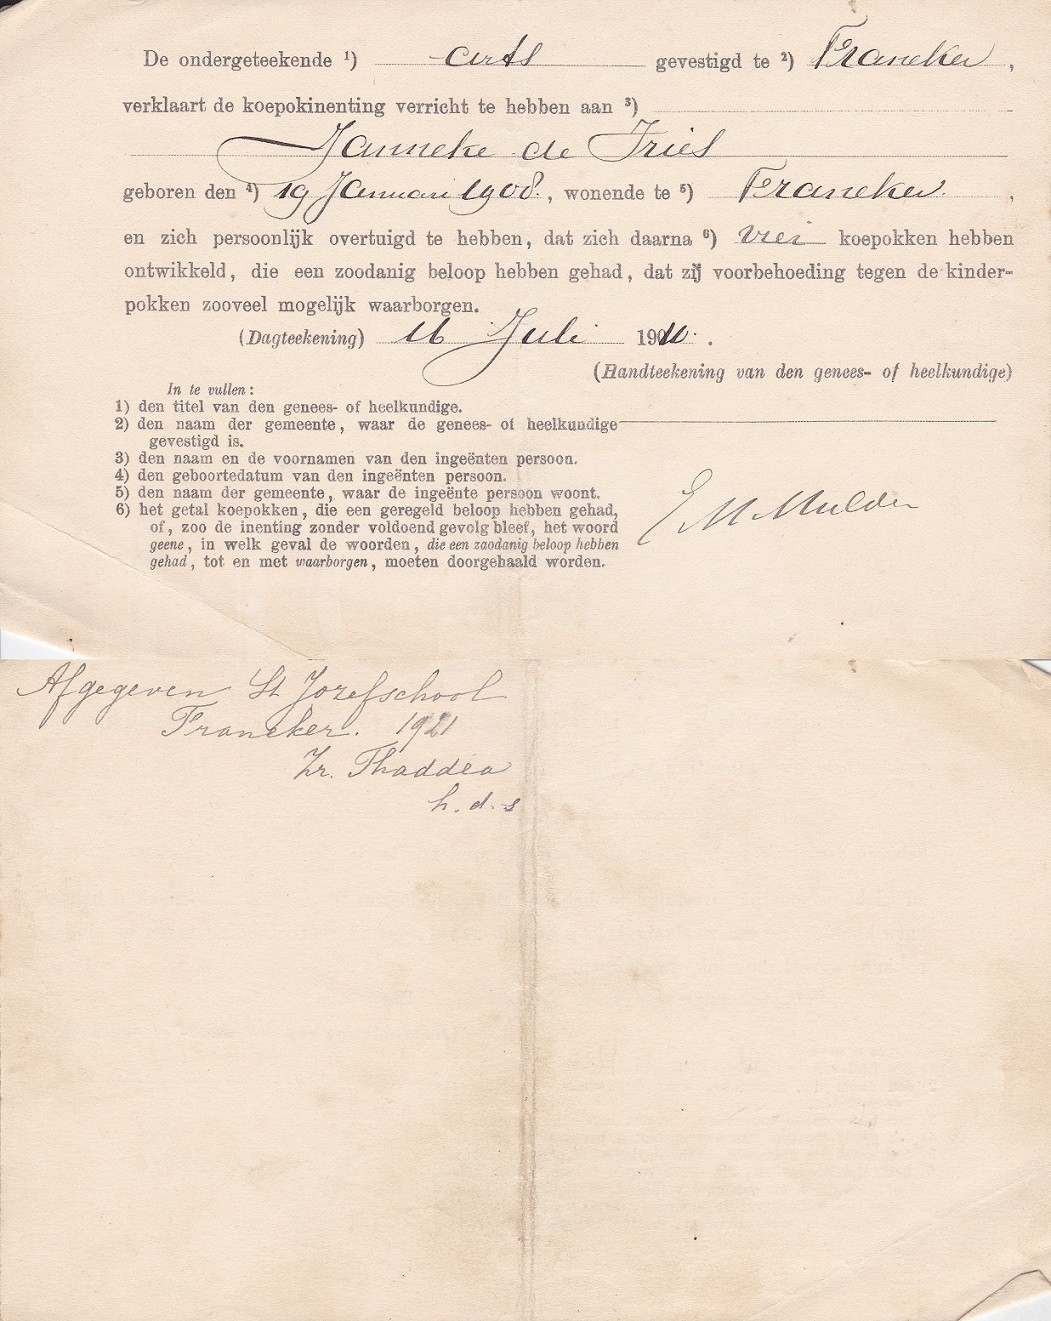 De ondergeteekende ¹) arts gevestigd te ²) Franeker,
verklaart de koepokinenting verricht te hebben aan ³)
Janneke de Fries
geboren den ⁴) 19 Januari 1908., wonende te ⁵) Franeker.,
en zich persoonlijk overtuigd te hebben, dat zich daarna ⁶) vier koepokken hebben
ontwikkeld, die een zoodanig beloop hebben gehad, dat zij voorbehoeding tegen de kinder-
pokken zooveel mogelijk waarborgen.
(Dagteekening) 16 Juli 1910.
(Handteekening van den genees- of heelkundige)
In te vullen:
1) den titel van den genees- of heelkundige.
2) den naam der gemeente, waar de genees- of heelkundige
gevestigd is.
3) den naam en de voornamen van den ingeënten persoon.
4) den geboortedatum van den ingeënten persoon.
5) den naam der gemeente, waar de ingeënte persoon woont.
6) het getal koepokken, die een geregeld beloop hebben gehad,
of, zoo de inenting zonder voldoend gevolg bleef, het woord
geene, in welk geval de woorden, die een zoodanig beloop hebben
gehad, tot en met waarborgen, moeten doorgehaald worden.
E M Mulder
Afgegeven St Jozefschool
Franeker. 1921
Zr. Thaddea
h. d. s